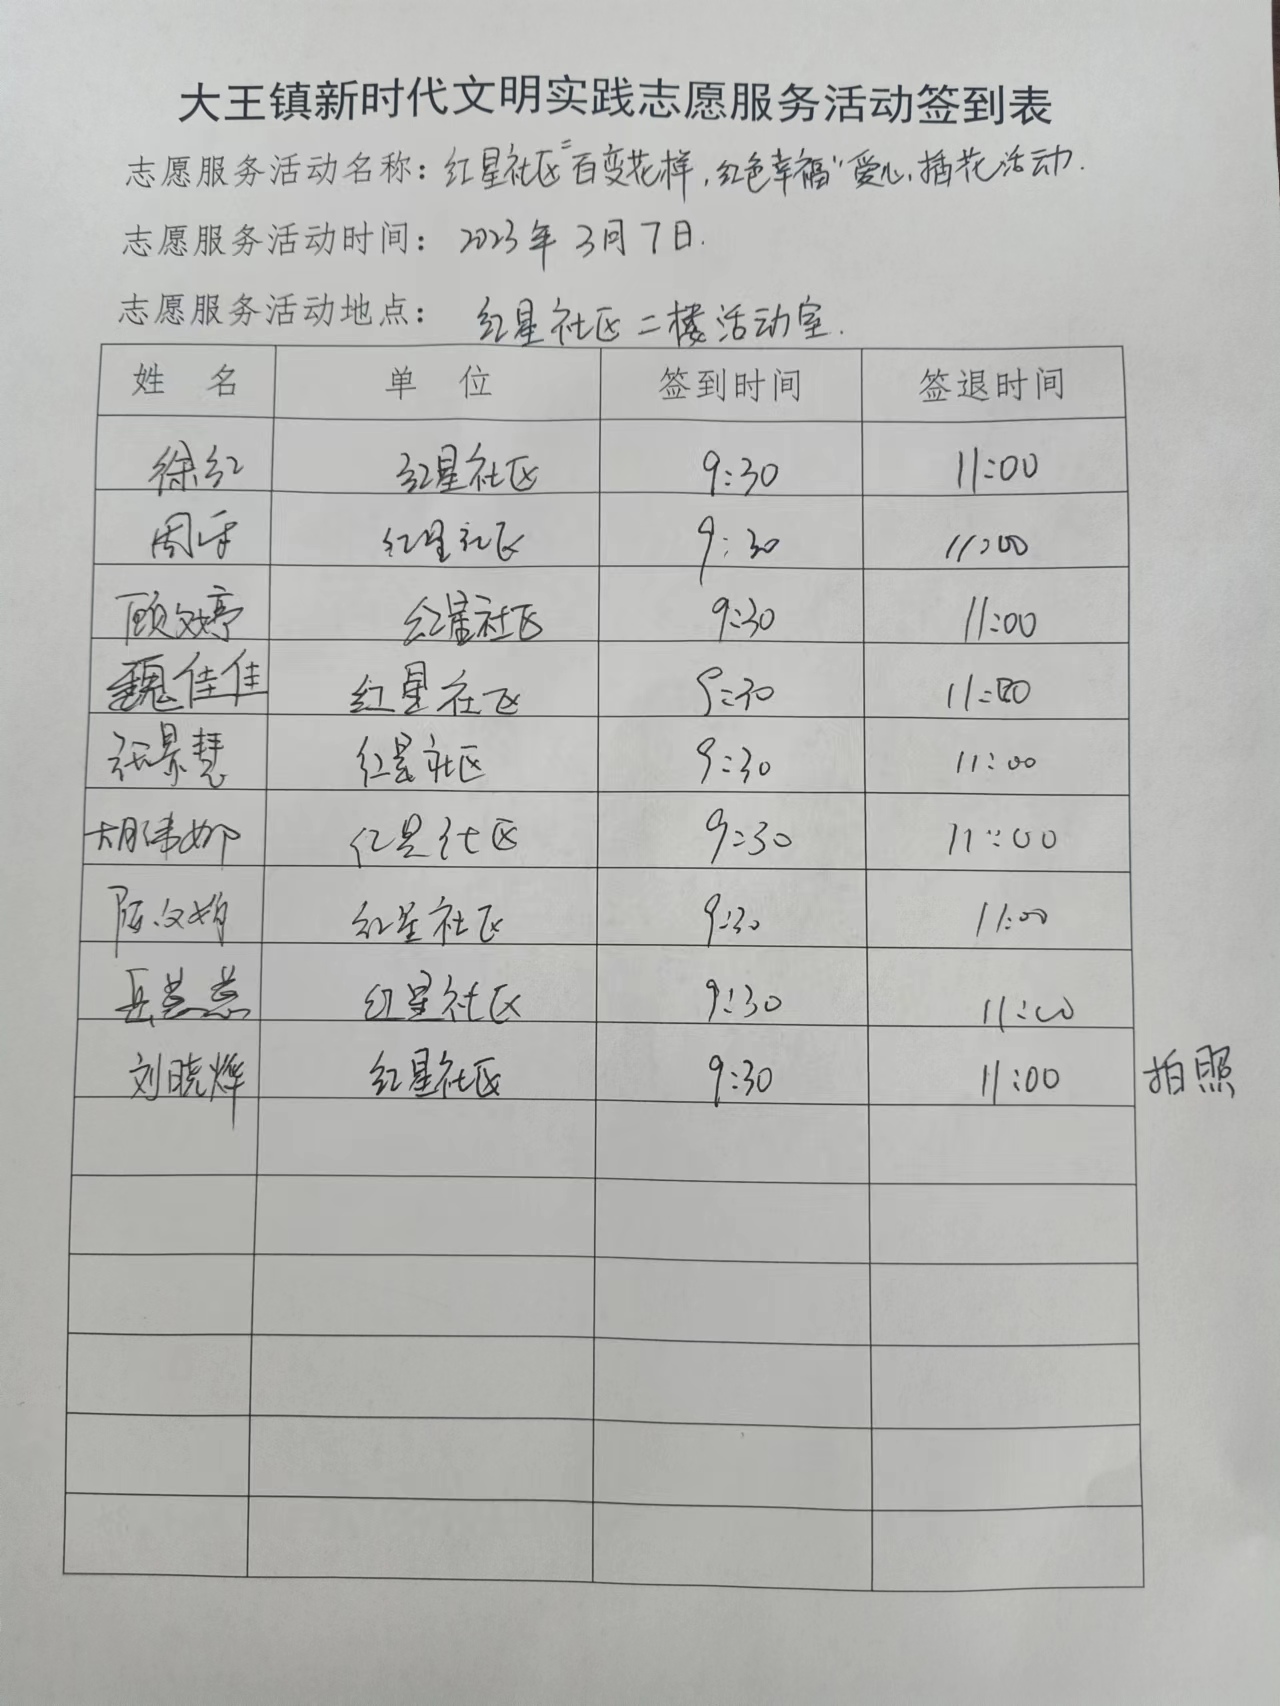 大王镇新时代文明实践志愿服务活动签到表
志愿服务活动名称：红星社区"百变花样，红色幸福"爱心插花活动.
志愿服务活动时间：2023年3月7日.
志愿服务活动地点：红星社区二楼活动室.
姓 名 单 位 签到时间 签退时间
徐红 红星社区 9:30 11:00
周平 红星社区 9:30 11:00
顾文婷 红星社区 9:30 11:00
魏佳佳 红星社区 9:30 11:00
张景慧 红星社区 9:30 11:00
胡伟娜 红星社区 9:30 11:00
陈文娟 红星社区 9:30 11:00
岳 红星社区 9:30 11:00
刘晓烨 红星社区 9:30 11:00 拍照